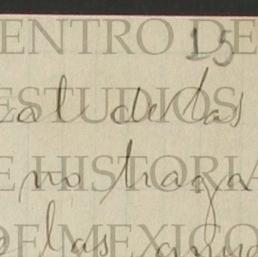 CENTRO DE
15
ESTUDIOS
al de las
DE HISTORIA
no haga
DE MEXICO
las